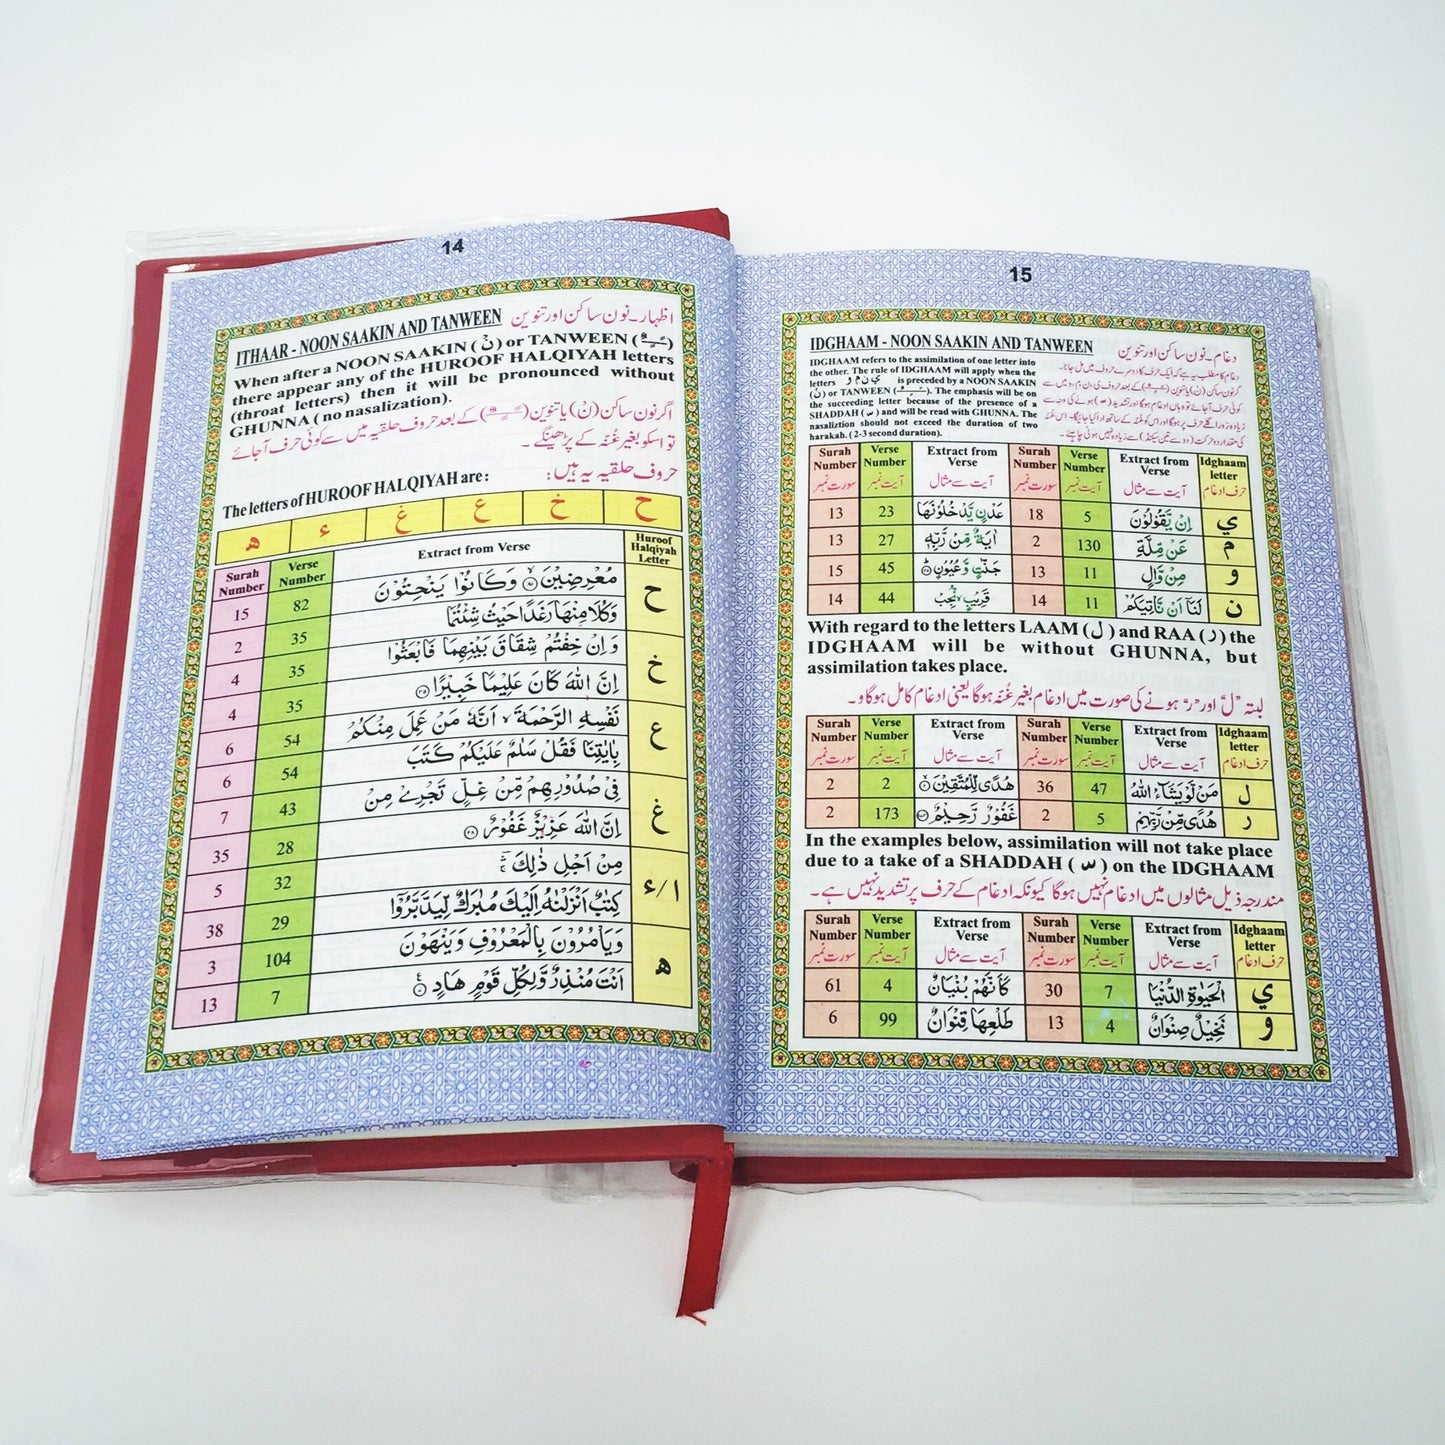 14
ITHAAR - NOON SAAKIN AND TANWEEN اظہار۔نون ساکن اور تنوین
When after a NOON SAAKIN (نْ) or TANWEEN (ـًـٍـٌ)
there appear any of the HUROOF HALQIYAH letters
(throat letters) then it will be pronounced without
GHUNNA (no nasalization).
اگر نون ساکن (نْ) یا تنوین (ـًـٍـٌ) کے بعد حروف حلقیہ میں سے کوئی حرف آجائے
تو اسکو بغیر غُنّہ کے پڑھینگے ۔
حروف حلقیہ یہ ہیں:
The letters of HUROOF HALQIYAH are:
ح خ ع غ ء ھ
Surah Number Verse Number Extract from Verse Huroof Halqiyah Letter
15 82 مُعْرِضِيْنَ ۸۱ وَكَانُوْا يَنْحِتُوْنَ ح
2 35 وَكُلَا مِنْهَا رَغَدًا حَيْثُ شِئْتُمَا
4 35 وَاِنْ خِفْتُمْ شِقَاقَ بَيْنِهِمَا فَابْعَثُوْا خ
4 35 اِنَّ اللّٰهَ كَانَ عَلِيْمًا خَبِيْرًا ۳۵
6 54 نَفْسِهِ الرَّحْمَةَ ۙ اَنَّهٗ مَنْ عَمِلَ مِنْكُمْ ع
6 54 بِاٰيٰتِنَا فَقُلْ سَلٰمٌ عَلَيْكُمْ كَتَبَ
7 43 فِيْ صُدُوْرِهِمْ مِّنْ غِلٍّ تَجْرِيْ مِنْ غ
35 28 اِنَّ اللّٰهَ عَزِيْزٌ غَفُوْرٌ ۲۸
5 32 مِنْ اَجْلِ ذٰلِكَ ا/ء
38 29 كِتٰبٌ اَنْزَلْنٰهُ اِلَيْكَ مُبٰرَكٌ لِّيَدَّبَّرُوْٓا
3 104 وَيَأْمُرُوْنَ بِالْمَعْرُوْفِ وَيَنْهَوْنَ ھ
13 7 اَنْتَ مُنْذِرٌ وَّلِكُلِّ قَوْمٍ هَادٍ
15
IDGHAAM - NOON SAAKIN AND TANWEEN دغام۔نون ساکن اور تنوین
IDGHAAM refers to the assimilation of one letter into
the other. The rule of IDGHAAM will apply when the
letters ي ن م و is preceded by a NOON SAAKIN
(نْ) or TANWEEN (ـًـٍـٌ). The emphasis will be on
the succeeding letter because of the presence of a
SHADDAH (ّ) and will be read with GHUNNA. The
nasaliztion should not exceed the duration of two
harakah. ( 2-3 second duration).
دغام کا مطلب یہ ہے کہ ایک حرف کا دوسرے حرف میں مل جانا۔
Surah Number سورت نمبر Verse Number آیت نمبر Extract from Verse آیت سے مثال Surah Number سورت نمبر Verse Number آیت نمبر Extract from Verse آیت سے مثال Idghaam letter حرف ادغام
13 23 عَدْنٍ يَّدْخُلُوْنَهَا 18 5 اِنْ يَّقُوْلُوْنَ ي
13 27 اٰيَةٌ مِّنْ رَّبِّهٖ 2 130 عَنْ مِّلَّةِ م
15 45 جَنّٰتٍ وَّعُيُوْنٍ ۴۵ 13 11 مِنْ وَّالٍ و
14 44 قَرِيْبٍ ۙ نُّجِبْ 14 11 لَنَآ اَنْ نَّأْتِيَكُمْ ن
With regard to the letters LAAM (ل) and RAA (ر) the
IDGHAAM will be without GHUNNA, but
assimilation takes place.
لبتہ ”ل“ اور ”ر“ ہونے کی صورت میں ادغام بغیر غُنّہ ہوگا یعنی ادغام کامل ہوگا و۔
Surah Number سورت نمبر Verse Number آیت نمبر Extract from Verse آیت سے مثال Surah Number سورت نمبر Verse Number آیت نمبر Extract from Verse آیت سے مثال Idghaam letter حرف ادغام
2 2 هُدًى لِّلْمُتَّقِيْنَ 36 47 مَنْ لَّوْ يَشَآءُ اللّٰهُ ل
2 173 غَفُوْرٌ رَّحِيْمٌ 2 5 هُدًى مِّنْ رَّبِّهِمْ ر
In the examples below, assimilation will not take place
due to a take of a SHADDAH (ّ) on the IDGHAAM
مندرجہ ذیل مثالوں میں ادغام نہیں ہوگا کیونکہ ادغام کے حرف پر تشدید نہیں ہے۔
Surah Number سورت نمبر Verse Number آیت نمبر Extract from Verse آیت سے مثال Surah Number سورت نمبر Verse Number آیت نمبر Extract from Verse آیت سے مثال Idghaam letter حرف ادغام
61 4 كَاَنَّهُمْ بُنْيَانٌ 30 7 الْحَيٰوةِ الدُّنْيَا ي
6 99 طَلْعِهَا قِنْوَانٌ 13 4 نَخِيْلٌ صِنْوَانٌ و